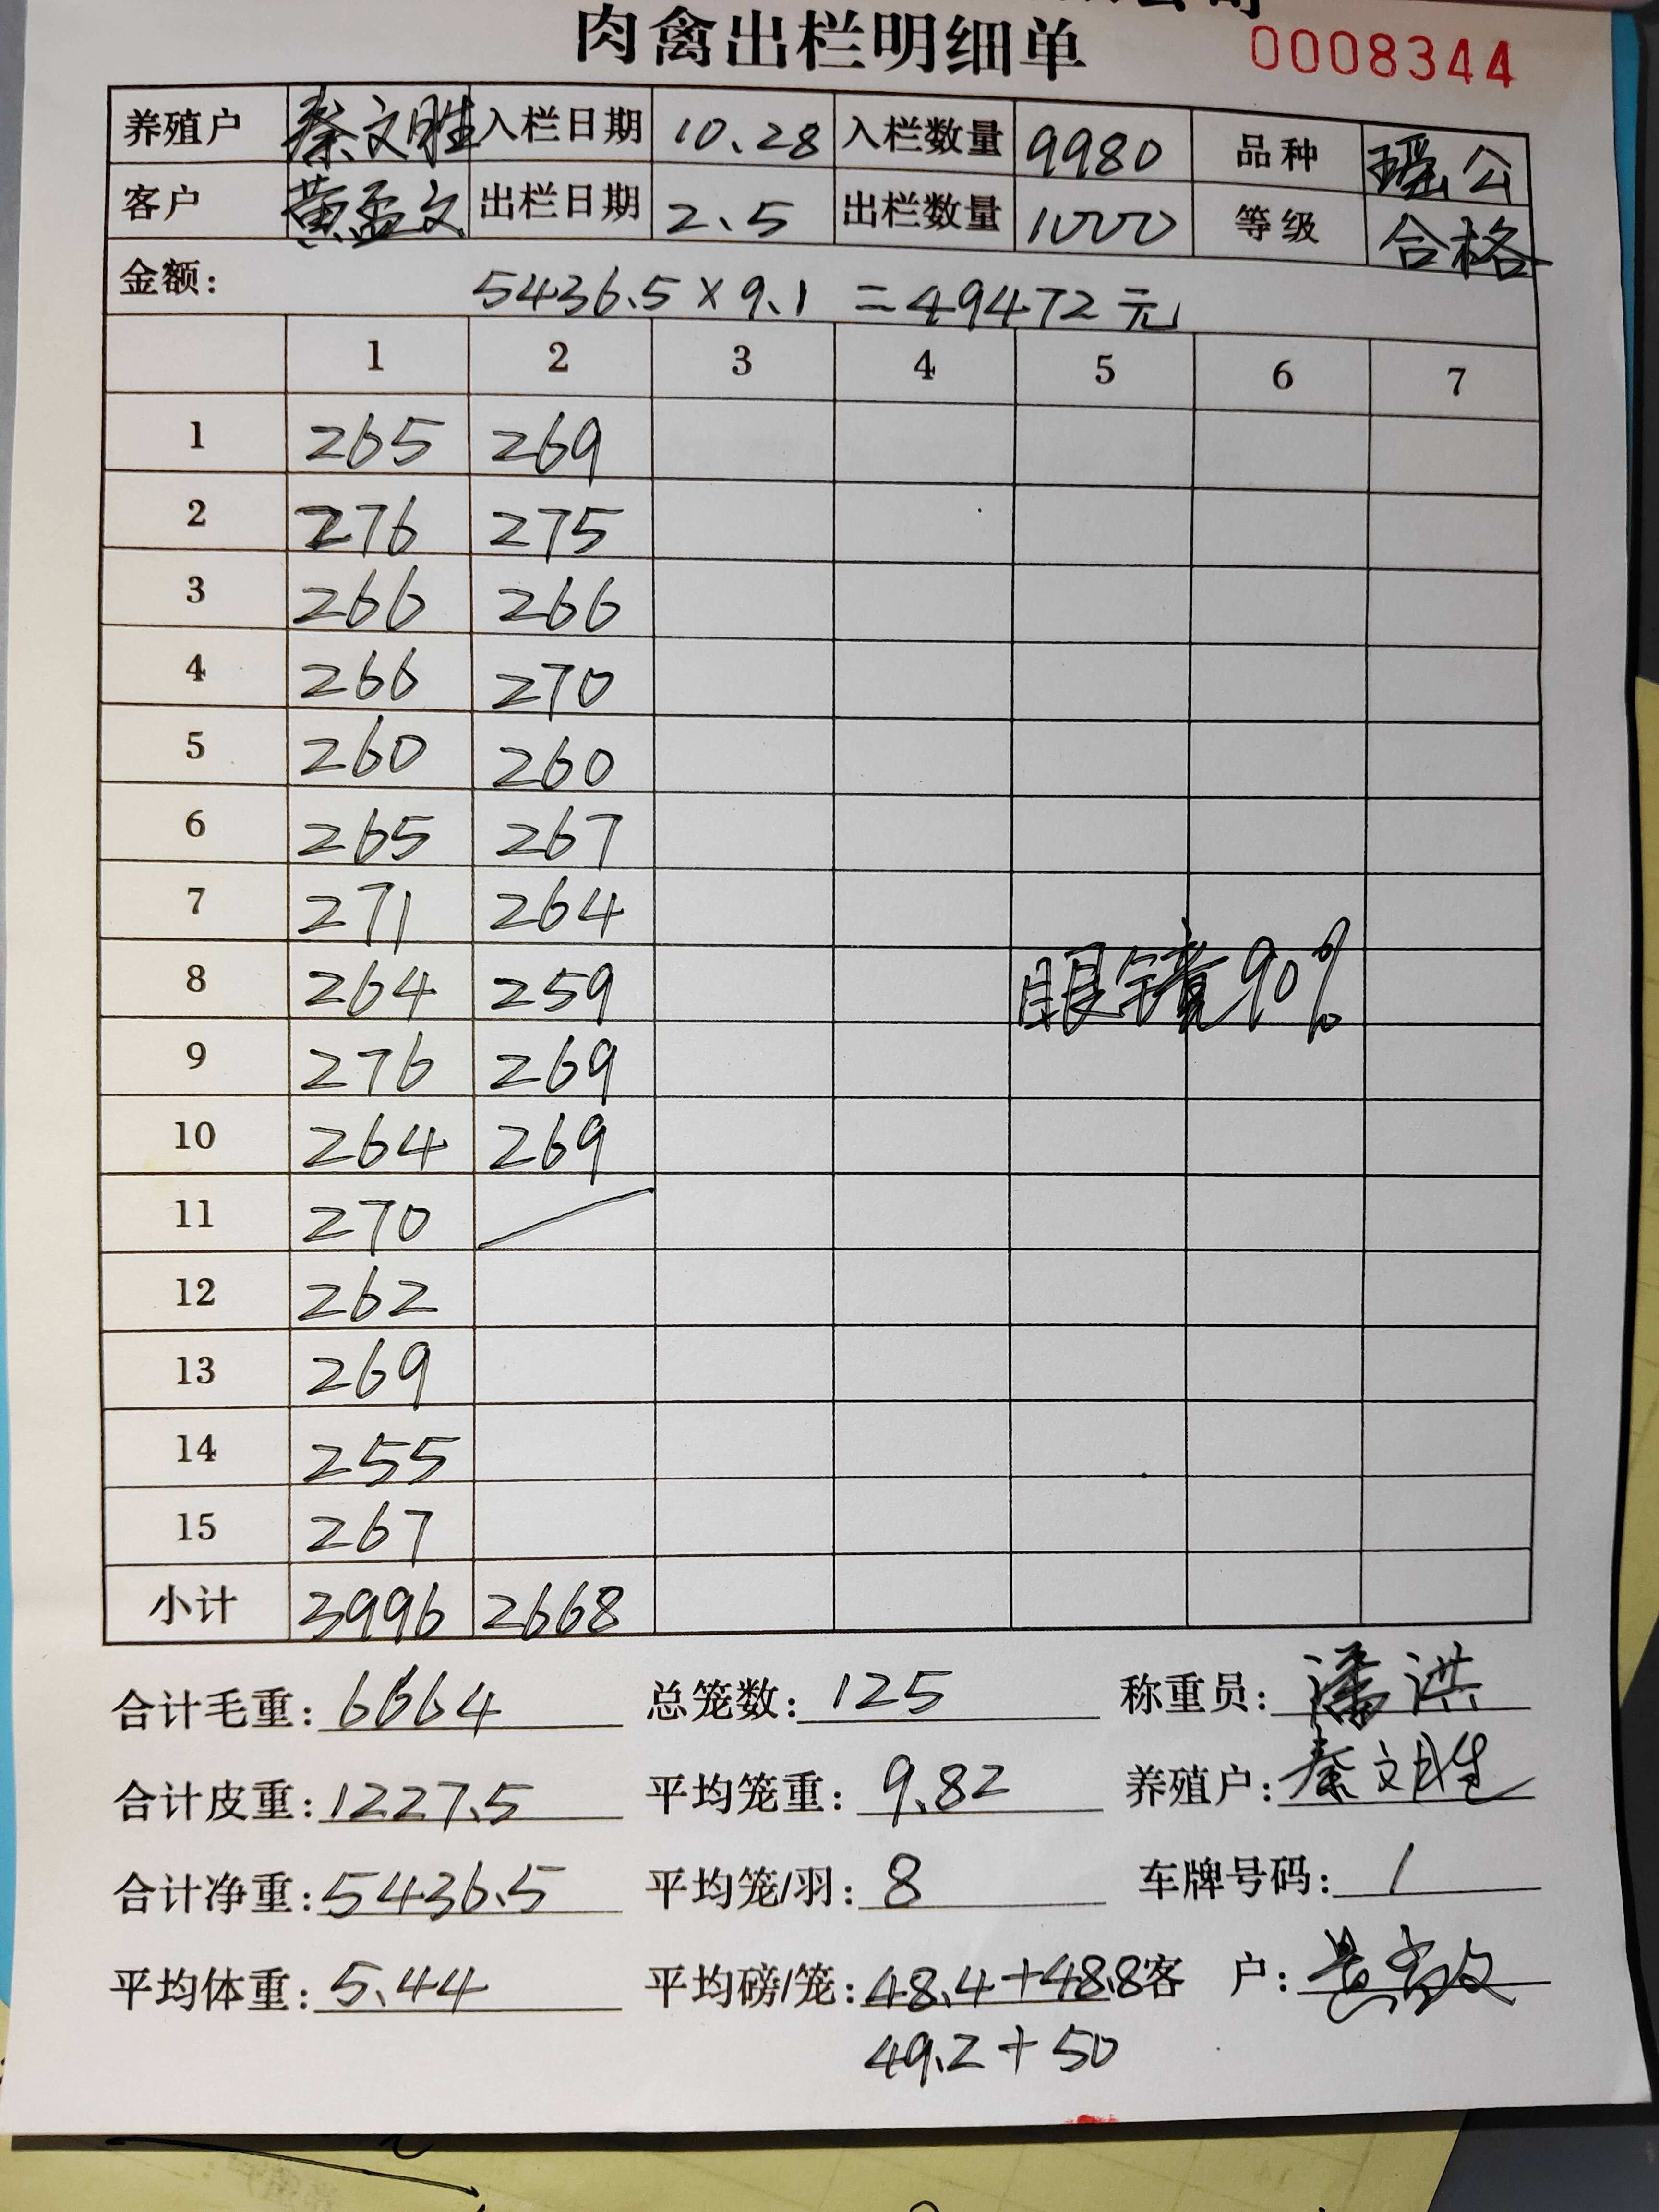 肉禽出栏明细单 0008344
养殖户 秦文胜 入栏日期 10.28 入栏数量 9980 品种 瑶公
客户 黄孟文 出栏日期 2.5 出栏数量 1000 等级 合格
金额: 5436.5×9.1=49472元
1 2 3 4 5 6 7
1 265 269
2 276 275
3 266 266
4 266 270
5 260 260
6 265 267
7 271 264
8 264 259 眼镜90%
9 276 269
10 264 269
11 270
12 262
13 269
14 255
15 267
小计 3996 2668
合计毛重: 6664 总笼数: 125 称重员: 潘洪
合计皮重: 1227.5 平均笼重: 9.82 养殖户: 秦文胜
合计净重: 5436.5 平均笼/羽: 8 车牌号码: 1
平均体重: 5.44 平均磅/笼: 48.4+48.8 客户:
49.2+50